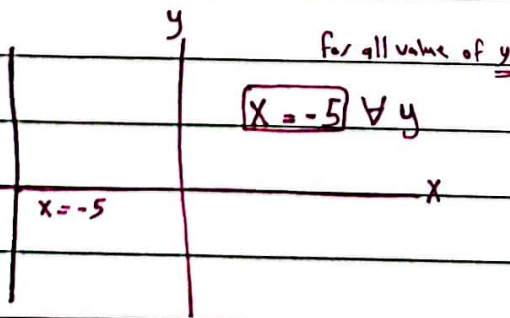 y
for all value of y
x = -5 ∀ y
x
x = -5